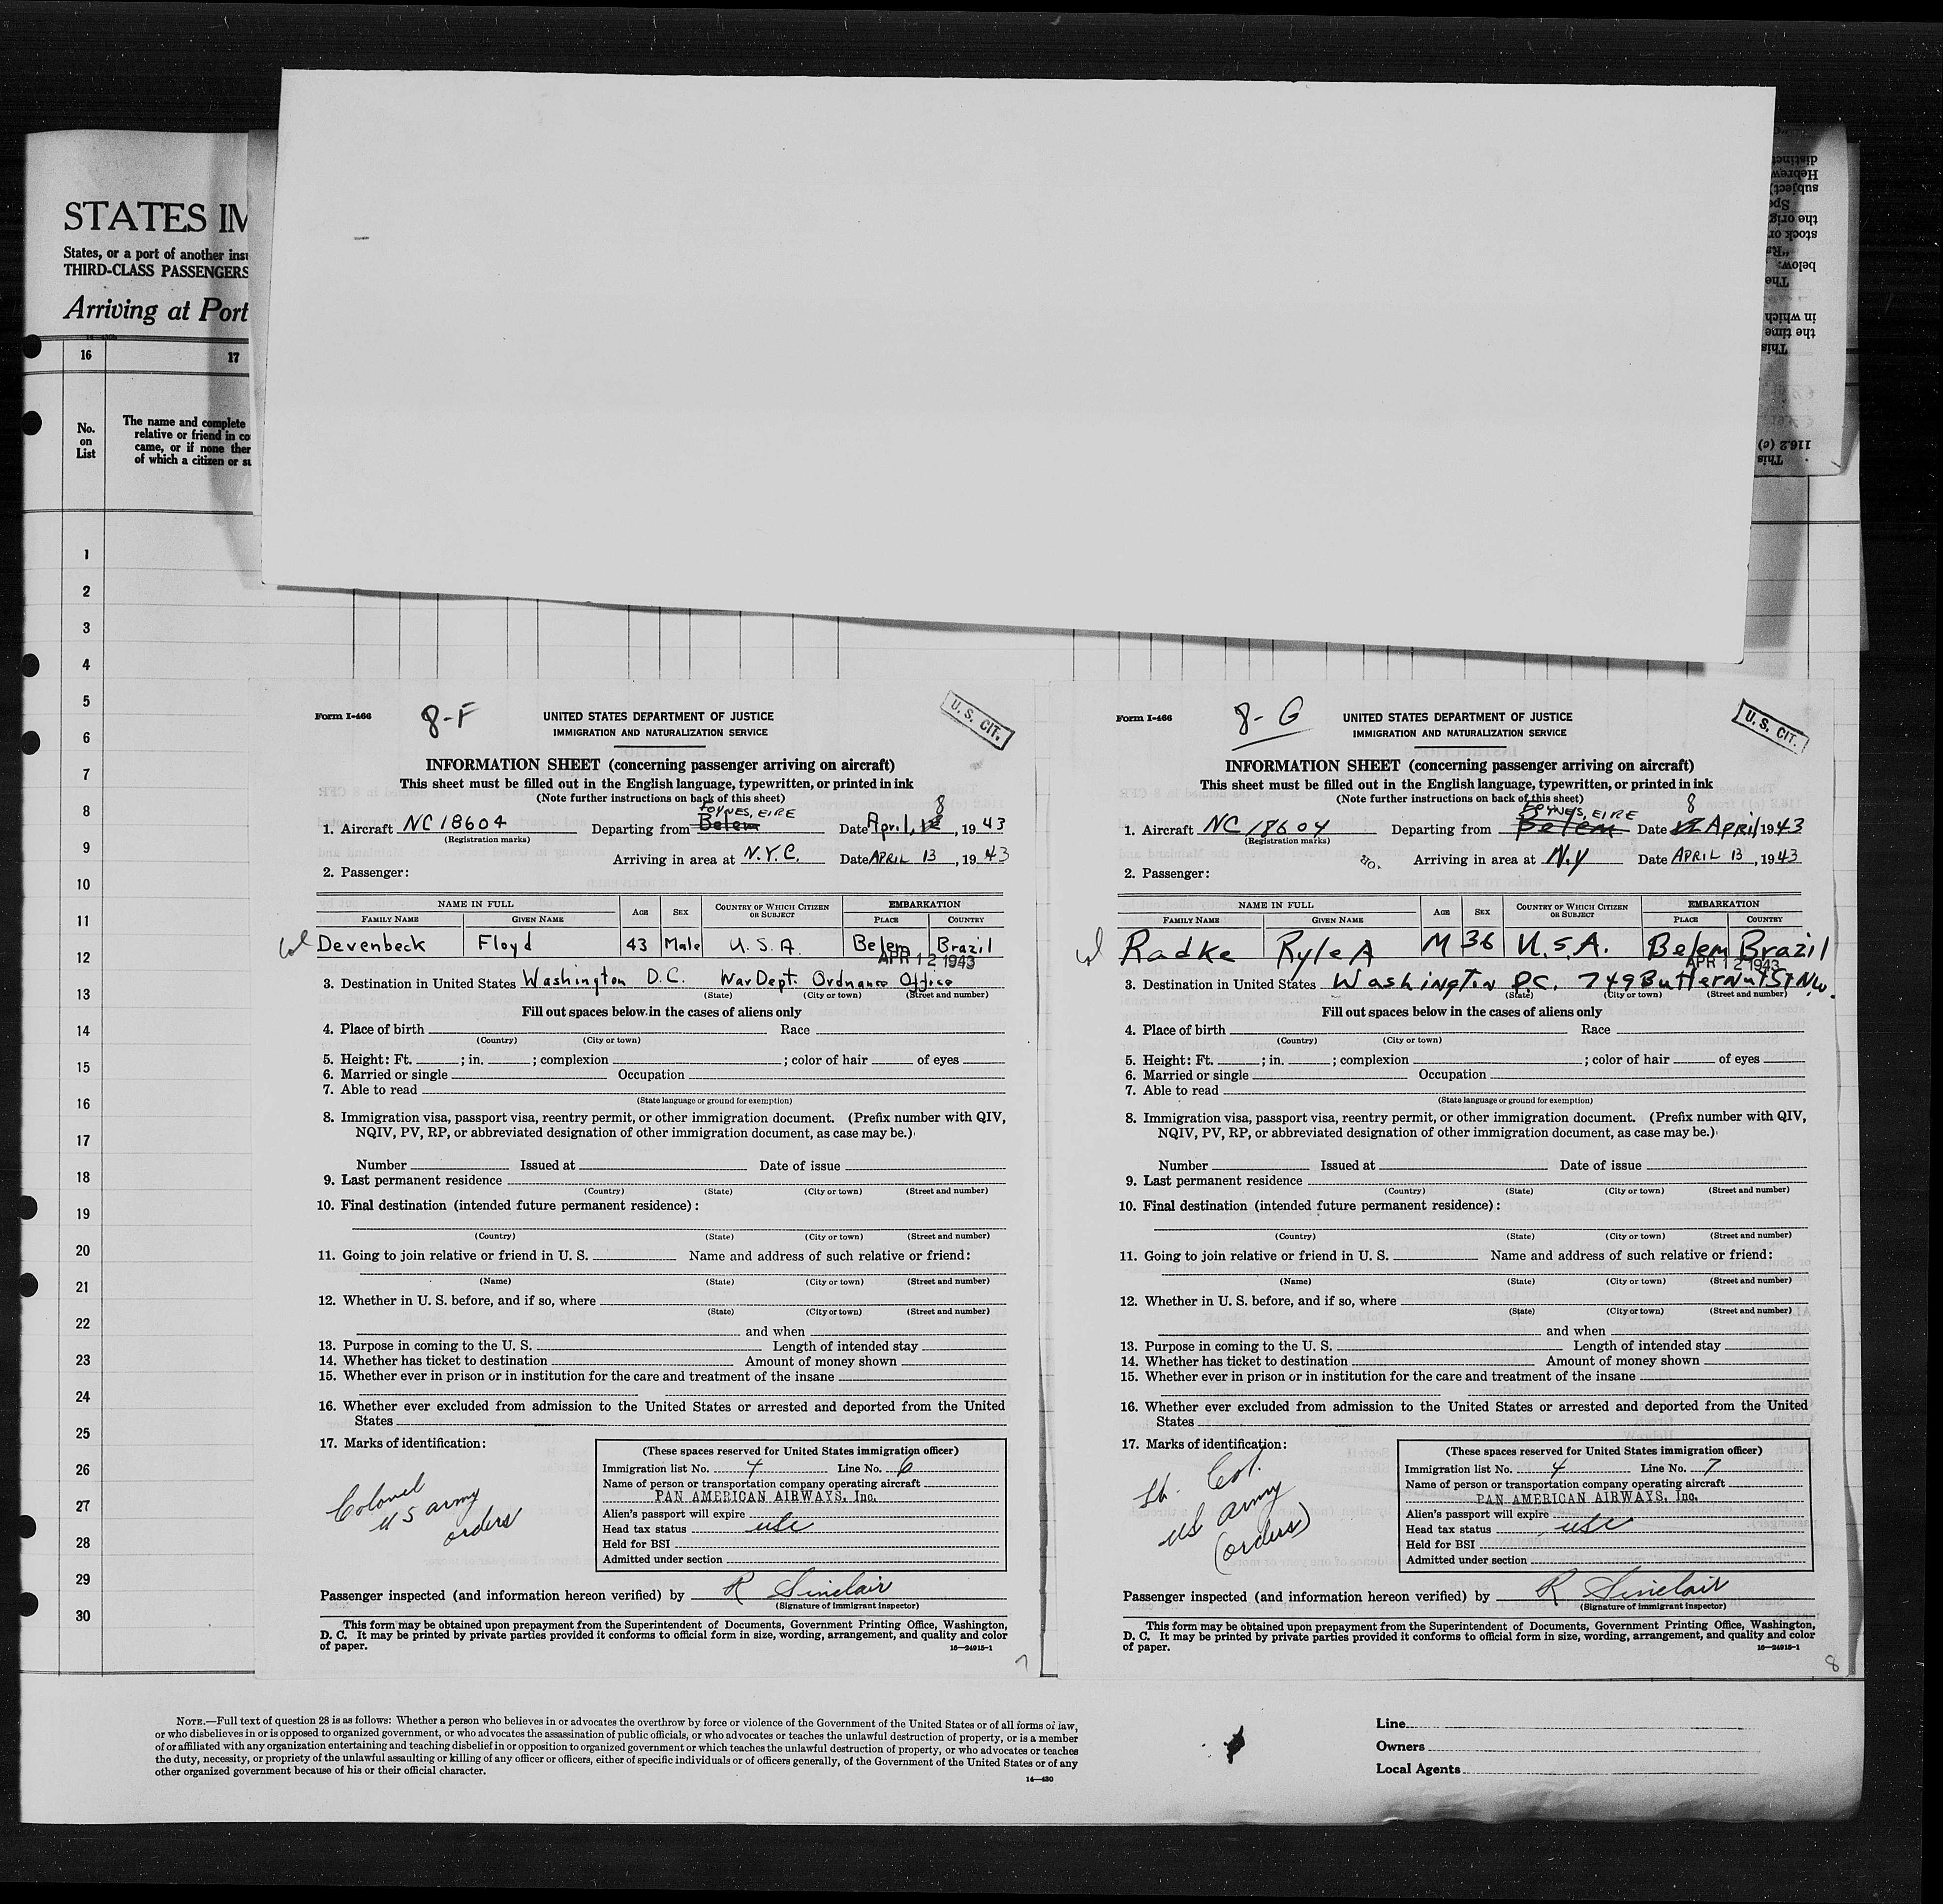 STATES IM
States, or a port of another insu
THIRD-CLASS PASSENGERS
Arriving at Port
16 17
No. on List
The name and complete
relative or friend in co
came, or if none ther
of which a citizen or su
1
2
3
4
5
6
7
8
9
10
11
12
13
14
15
16
17
18
19
20
21
22
23
24
25
26
27
28
29
30
distinct
Hebrew
subject)
Spe
the orig
stock or
"Ra
below:
The
in which
the time
This
116.2 (c)
This
Form I-466 8-F U. S. CIT.
UNITED STATES DEPARTMENT OF JUSTICE
IMMIGRATION AND NATURALIZATION SERVICE
INFORMATION SHEET (concerning passenger arriving on aircraft)
This sheet must be filled out in the English language, typewritten, or printed in ink
(Note further instructions on back of this sheet)
FOYNES, EIRE 8
1. Aircraft NC 18604 Departing from Belem Date April, 12, 1943
(Registration marks)
Arriving in area at N.Y.C. Date APRIL 13, 1943
2. Passenger:
NAME IN FULL AGE SEX COUNTRY OF WHICH CITIZEN OR SUBJECT EMBARKATION
FAMILY NAME GIVEN NAME PLACE COUNTRY
Col Devenbeck Floyd 43 Male U.S.A. Belem Brazil
APR 12 1943
3. Destination in United States Washington D.C. War Dept. Ordnance Office
(State) (City or town) (Street and number)
Fill out spaces below in the cases of aliens only
4. Place of birth Race
(Country) (City or town)
5. Height: Ft. ; in. ; complexion ; color of hair of eyes
6. Married or single Occupation
7. Able to read
(State language or ground for exemption)
8. Immigration visa, passport visa, reentry permit, or other immigration document. (Prefix number with QIV,
NQIV, PV, RP, or abbreviated designation of other immigration document, as case may be.)
Number Issued at Date of issue
9. Last permanent residence
(Country) (State) (City or town) (Street and number)
10. Final destination (intended future permanent residence):
(Country) (State) (City or town) (Street and number)
11. Going to join relative or friend in U. S. Name and address of such relative or friend:
(Name) (State) (City or town) (Street and number)
12. Whether in U. S. before, and if so, where
(State) (City or town) (Street and number)
and when
13. Purpose in coming to the U. S. Length of intended stay
14. Whether has ticket to destination Amount of money shown
15. Whether ever in prison or in institution for the care and treatment of the insane
16. Whether ever excluded from admission to the United States or arrested and deported from the United
States
17. Marks of identification:
Colonel
US army
orders
(These spaces reserved for United States immigration officer)
Immigration list No. 4 Line No. 6
Name of person or transportation company operating aircraft
PAN AMERICAN AIRWAYS, Inc.
Alien's passport will expire
Head tax status usc
Held for BSI
Admitted under section
Passenger inspected (and information hereon verified) by R Sinclair
(Signature of immigrant inspector)
This form may be obtained upon prepayment from the Superintendent of Documents, Government Printing Office, Washington,
D. C. It may be printed by private parties provided it conforms to official form in size, wording, arrangement, and quality and color
of paper. 16—24915-1
7
Form I-466 8-G U. S. CIT.
UNITED STATES DEPARTMENT OF JUSTICE
IMMIGRATION AND NATURALIZATION SERVICE
INFORMATION SHEET (concerning passenger arriving on aircraft)
This sheet must be filled out in the English language, typewritten, or printed in ink
(Note further instructions on back of this sheet)
FOYNES, EIRE 8
1. Aircraft NC 18604 Departing from Belem Date 12 April 1943
(Registration marks)
Arriving in area at N.Y Date APRIL 13, 1943
2. Passenger:
NAME IN FULL AGE SEX COUNTRY OF WHICH CITIZEN OR SUBJECT EMBARKATION
FAMILY NAME GIVEN NAME PLACE COUNTRY
Radke Ryle A M 36 U.S.A. Belem Brazil
APR 12 1943
3. Destination in United States Washington D.C. 749 Butternut St N.W.
(State) (City or town) (Street and number)
Fill out spaces below in the cases of aliens only
4. Place of birth Race
(Country) (City or town)
5. Height: Ft. ; in. ; complexion ; color of hair of eyes
6. Married or single Occupation
7. Able to read
(State language or ground for exemption)
8. Immigration visa, passport visa, reentry permit, or other immigration document. (Prefix number with QIV,
NQIV, PV, RP, or abbreviated designation of other immigration document, as case may be.)
Number Issued at Date of issue
9. Last permanent residence
(Country) (State) (City or town) (Street and number)
10. Final destination (intended future permanent residence):
(Country) (State) (City or town) (Street and number)
11. Going to join relative or friend in U. S. Name and address of such relative or friend:
(Name) (State) (City or town) (Street and number)
12. Whether in U. S. before, and if so, where
(State) (City or town) (Street and number)
and when
13. Purpose in coming to the U. S. Length of intended stay
14. Whether has ticket to destination Amount of money shown
15. Whether ever in prison or in institution for the care and treatment of the insane
16. Whether ever excluded from admission to the United States or arrested and deported from the United
States
17. Marks of identification:
Lt. Col.
US army
(orders)
(These spaces reserved for United States immigration officer)
Immigration list No. 4 Line No. 7
Name of person or transportation company operating aircraft
PAN AMERICAN AIRWAYS, Inc.
Alien's passport will expire
Head tax status usc
Held for BSI
Admitted under section
Passenger inspected (and information hereon verified) by R Sinclair
(Signature of immigrant inspector)
This form may be obtained upon prepayment from the Superintendent of Documents, Government Printing Office, Washington,
D. C. It may be printed by private parties provided it conforms to official form in size, wording, arrangement, and quality and color
of paper. 16—24915-1
8
NOTE.—Full text of question 28 is as follows: Whether a person who believes in or advocates the overthrow by force or violence of the Government of the United States or of all forms of law,
or who disbelieves in or is opposed to organized government, or who advocates the assassination of public officials, or who advocates or teaches the unlawful destruction of property, or is a member
of or affiliated with any organization entertaining and teaching disbelief in or opposition to organized government or which teaches the unlawful destruction of property, or who advocates or teaches
the duty, necessity, or propriety of the unlawful assaulting or killing of any officer or officers, either of specific individuals or of officers generally, of the Government of the United States or of any
other organized government because of his or their official character.
14—430
Line
Owners
Local Agents